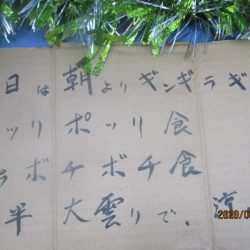 日は朝よりギンギラギ
ッリポッリ食
ボチボチ食
半大雲りで、涼